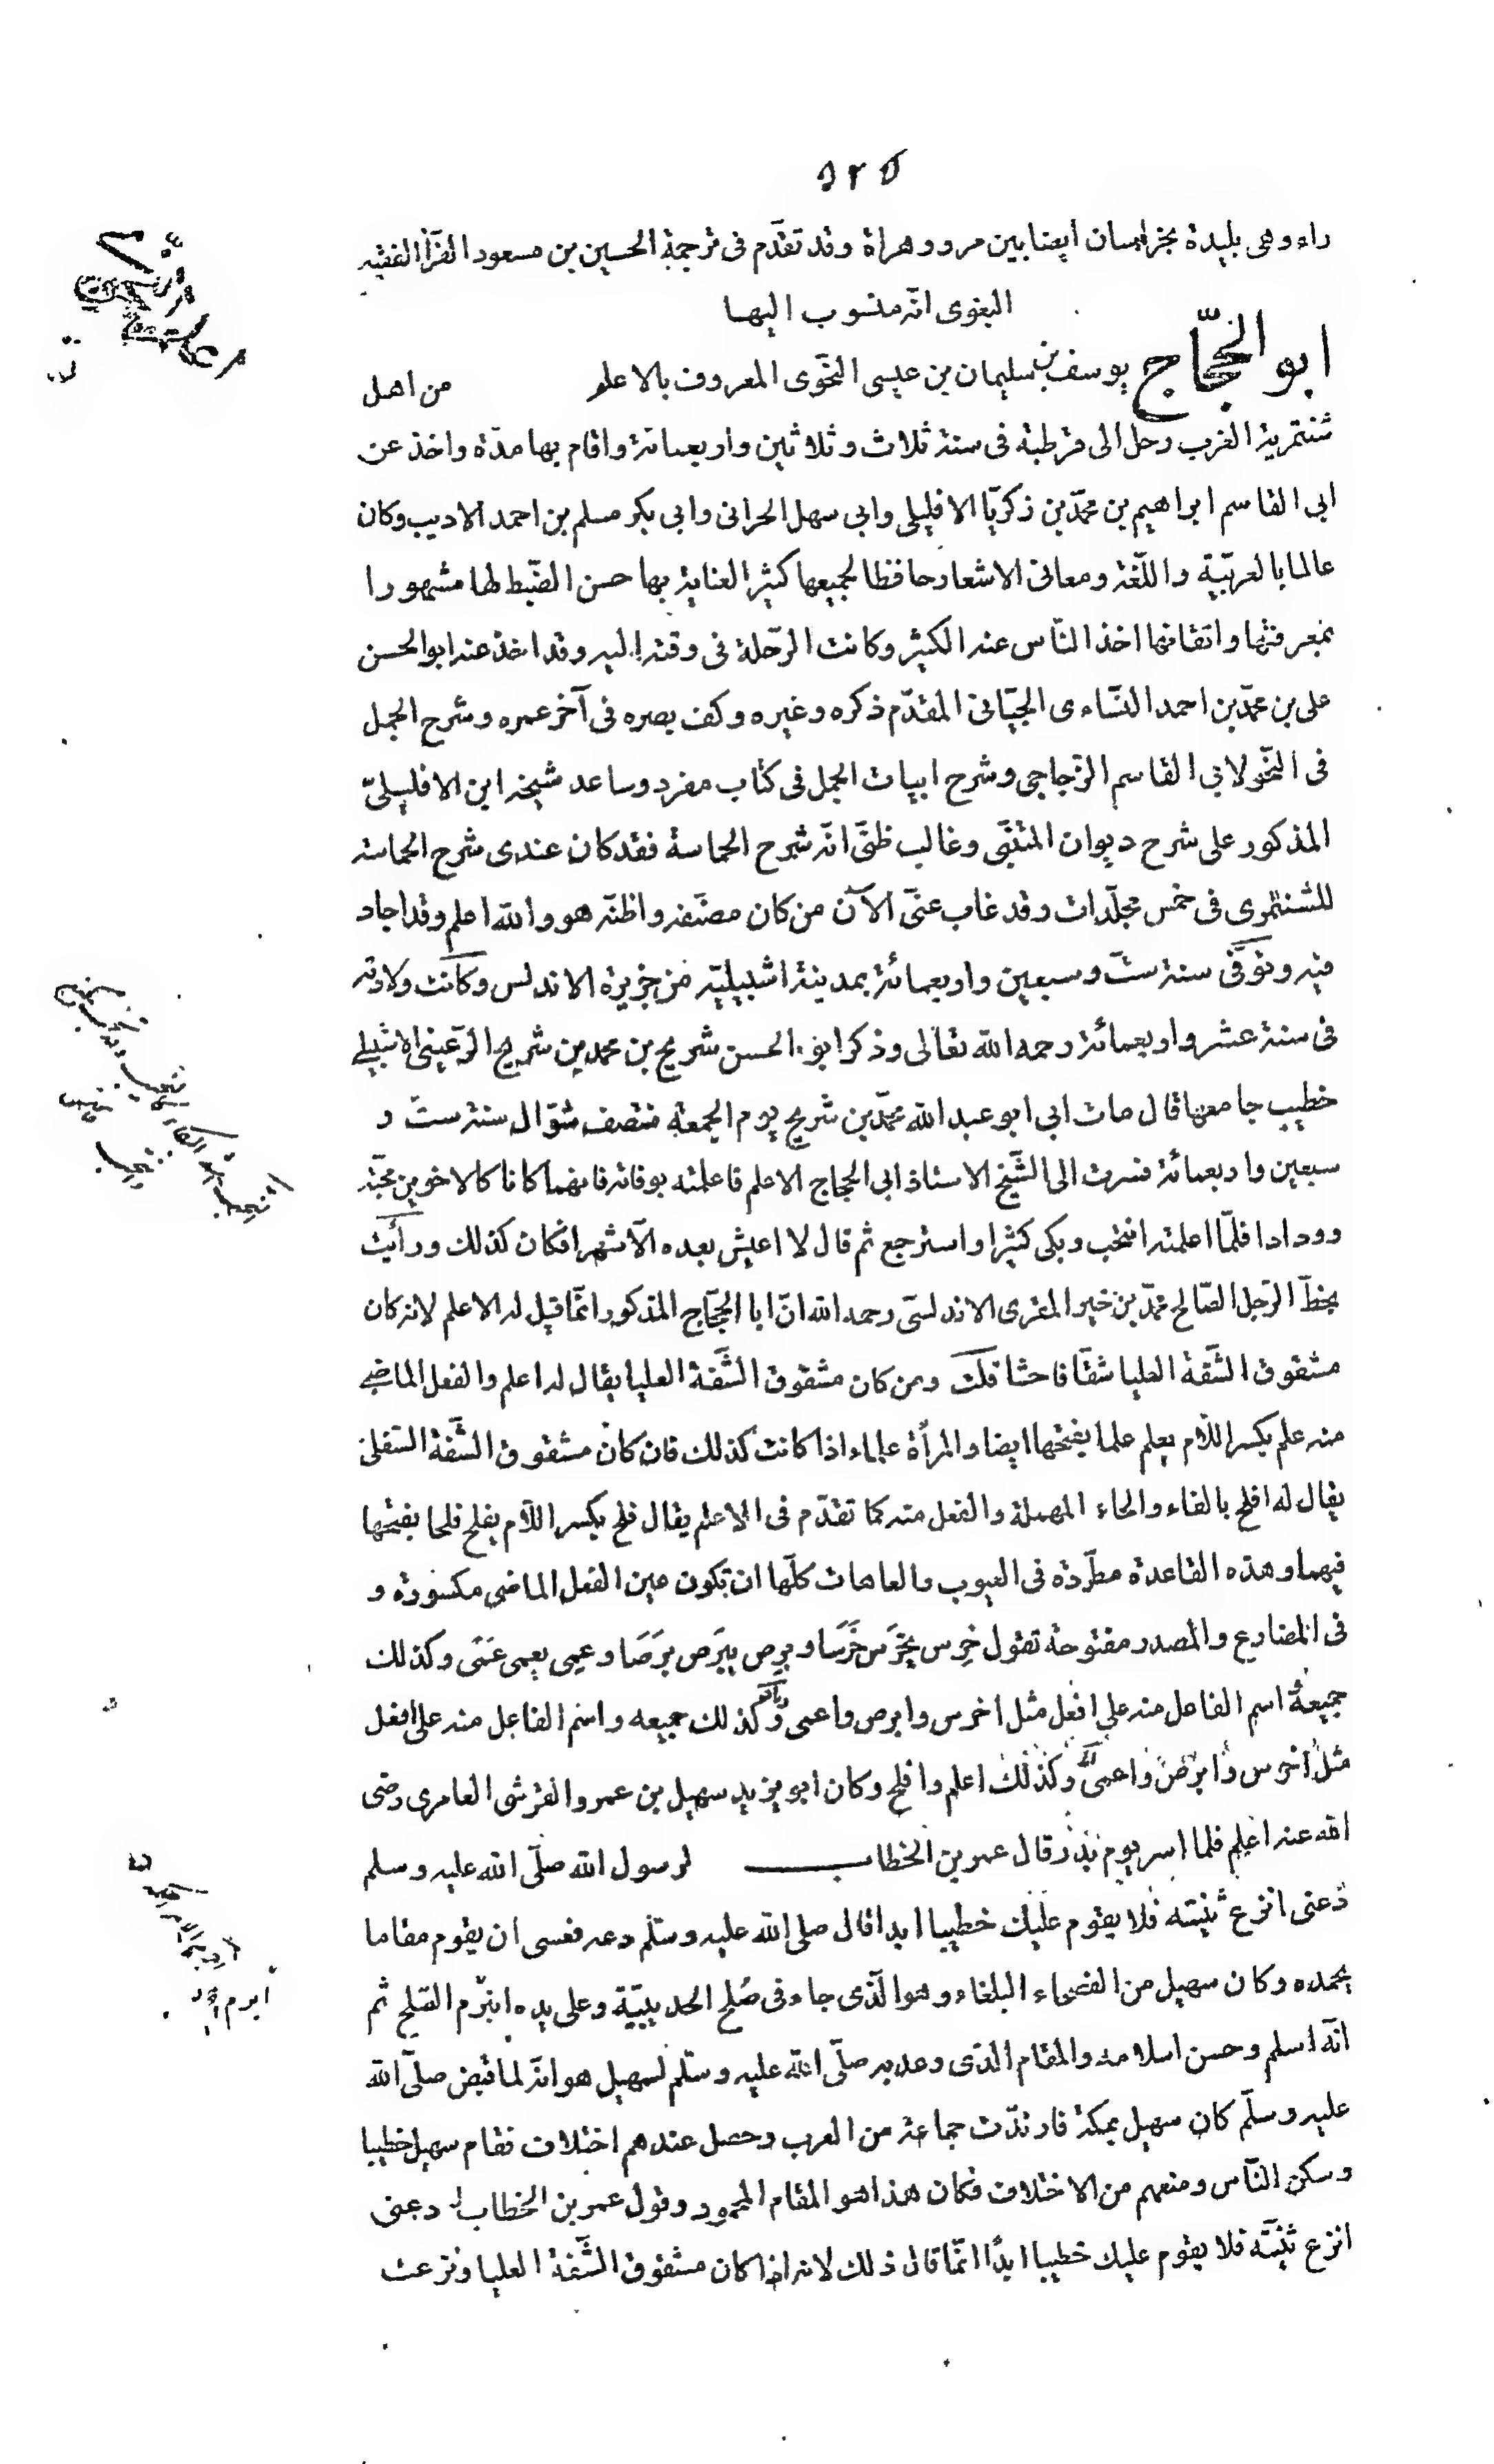 ٥٢٥
راء وهى بليدة بخراسان ايضا بين مرو وهراة وقد تقدّم فى ترجمة الحسين بن مسعود الفرّآ الفقيه
البغوى انّه منسوب اليها
ابو الحجّاج يوسف بن سليمان بن عيسى النحّوى المعروف بالاعلم من اهل
شنتمرية الغرب رحل الى قرطبة فى سنة ثلاث وثلاثين واربعمائة واقام بها مدّة واخذ عن
ابى القاسم ابراهيم بن محمّد بن زكريّا الافليلى وابى سهل الحرانى وابى بكر مسلم بن احمد الاديب وكان
عالما بالعربّية واللّغة ومعانى الاشعار حافظا لجميعها كثير العناية بها حسن الضّبط لها مشهورا
بمعرفتها واتقانها اخذ النّاس عنه الكثير وكانت الرّحلة فى وقته اليه وقد اخذ عنه ابو الحسن
على بن محمّد بن احمد الغسّاءى الجيّانى المقدّم ذكره وغيره وكف بصره فى آخر عمره وشرح الجمل
فى النحّو لابى القاسم الزّجاجى وشرح ابيات الجمل فى كتاب مفرد وساعد شيخه ابن الافليلىّ
المذكور على شرح ديوان المتنبّى وغالب ظنّى انّه شرح الحماسة فقد كان عندى شرح الحماسة
للشنتمرى فى خمس مجلّدات وقد غاب عنّى الآن من كان مصنّفه واظنّه هو والله اعلم وقد اجاد
فيه وتوفّى سنة ستّ وسبعين واربعمائة بمدينة اشبيليّة من جزيرة الاندلس وكانت ولادته
فى سنة عشر واربعمائة رحمه الله تعالى وذكر ابو الحسن شريح بن محمد بن شريح الرّعينى الاشبيلى
خطيب جامعها قال مات ابى ابو عبد الله محمّد بن شريح يوم الجمعة منتصف شوّال سنة ستّ و
سبعين واربعمائة فسرت الى الشّيخ الاستاذ ابى الحجاج الاعلم فاعلمته بوفاته فانهما كانا كالاخوين محبّة
وودادا فلمّا اعلمته انتحب وبكى كثيرا واسترجع ثم قال لا اعيش بعده الّا شهرا فكان كذلك ورأيت
بخطّ الرّجل الصّالح محمّد بن خير المقرى الاندلسىّ رحمه الله انّ ابا الحجّاج المذكور انمّا قيل له الاعلم لانه كان
مشقوق الشّفة العليا شقّا فاحشا قلت ومن كان مشقوق الشّفة العليا يقال له اعلم والفعل الماضى
منه علم بكسر اللّام يعلم علما بفتحها ايضا والمرأة علماء اذا كانت كذلك فان كان مشقوق الشّفة السّفلى
يقال له افلح بالفاء والحاء المهملة والفعل منه كما تقدّم فى الاعلم يقال فلح بكسر اللّام يفلح فلحا بفتحها
فيهما وهذه القاعدة مطّردة فى العيوب والعاهات كلّها ان تكون عين الفعل الماضى مكسورة و
فى المضارع والمصدر مفتوحة تقول خرِس يخرَس خَرَسا وبرِص يبرَص بَرَصَا وعمِى يعمى عَمًى وكذلك
جميعه اسم الفاعل منه على افعل مثل اخرس وابرص واعمى وكذلك جميعه واسم الفاعل منه على افعل
مثل اخرس وابرص واعمى وكذلك اعلم وافلح وكان ابو يزيد سهيل بن عمرو القرشى العامرى رضى
الله عنه اعلم فلما اسر يوم بدر قال عمر بن الخطاب لرسول الله صلّى الله عليه وسلم
دعنى انزع ثنيّته فلا يقوم عليك خطيبا ابدا قال صلى الله عليه وسلّم دعه فعسى ان يقوم مقاما
يحمده وكان سهيل من الفصحاء البلغاء وهو الّذى جاء فى صُلح الحديبيّة وعلى يده انبرم الصّلح ثم
انّه اسلم وحسن اسلامه والمقام الذى وعد به صلّى الله عليه وسلّم لسهيل هو انّه لما قبض صلّى الله
عليه وسلّم كان سهيل بمكة فارتدّت جماعة من العرب وحصل عندهم اختلاف فقام سهيل خطيبا
وسكن النّاس ومنعهم من الاختلاف فكان هذا هو المقام المحمود وقول عمر بن الخطاب دعنى
انزع ثنيّته فلا يقوم عليك خطيبا ابدًا انمّا قال ذلك لانه اذا كان مشقوق الشّفة العليا ونزعت